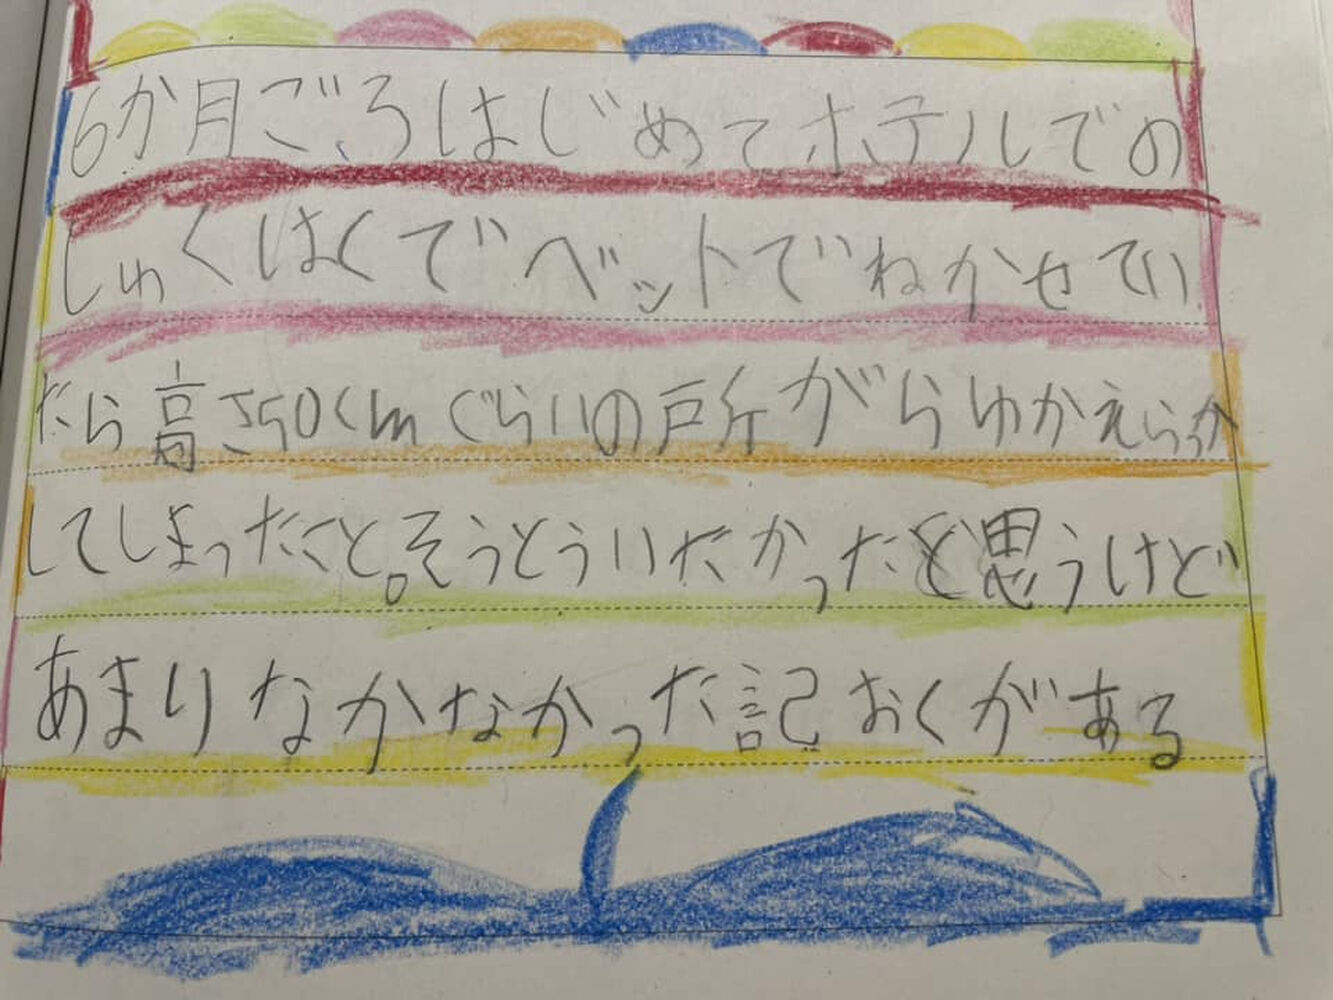 6か月ごろはじめてホテルでの
しゅくはくでベットでねかせてい
たら高さ50cmぐらいの戸所がらゆかえらっか
してしまったこと。そうとういたかったと思うけど
あまりなかなかった記おくがある